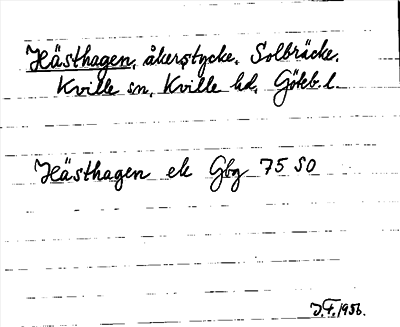 Hästhagen, åkerstycke, Solbräcke,
Kville sn, Kville hd, Göteb. l.
Hästhagen ek Gbg 75 SO
J.F. 1956.